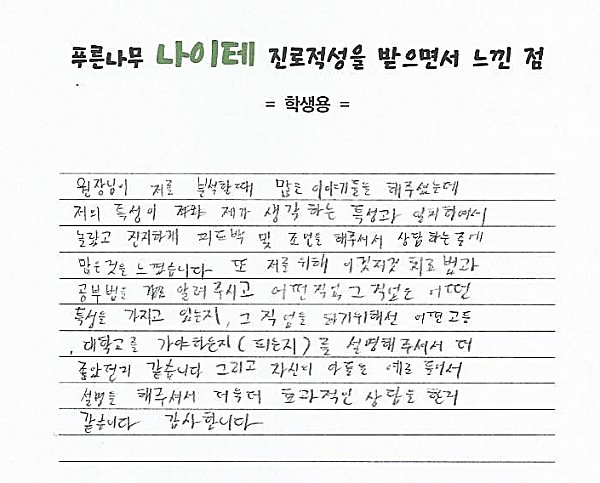 푸른나무 나이테 진로적성을 받으면서 느낀 점
= 학생용 =
원장님이 저를 분석할때 많은 이야기들을 해주셨는데
저의 특성이 제가 생각하는 특성과 일치하여서
놀랐고 진지하게 피드백 및 조언을 해주셔서 상담하는중에
많은것을 느꼈습니다 또 저를위해 이것저것 치료법과
공부법을 알려주시고 어떤직업, 그 직업은 어떤
특성을 가지고 있는지, 그 직업을 하기위해선 어떤고등
, 대학교를 가야하는지(피는지)를 설명해주셔서 더
좋았던거 같습니다 그리고 자신의 아들을 예로 들어서
설명을 해주셔서 더욱더 효과적인 상담을 한거
같습니다 감사합니다